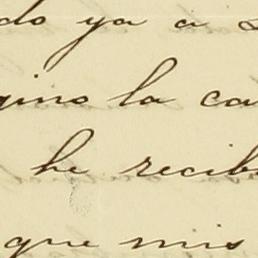 do ya a
gino la ca
he recib
que mis